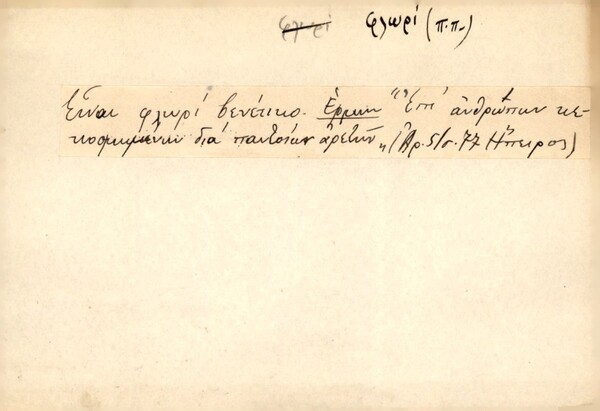 φλωρί φλωρί (π.π.)
Εἶναι φλωρί βενέτικο. Ἑρμην "Ἐπί ἀνθρώπων κε-
κοσμημένων διά παντοίων ἀρετῶν" (Ἀρ. 51 σ. 77 Ἤπειρος)